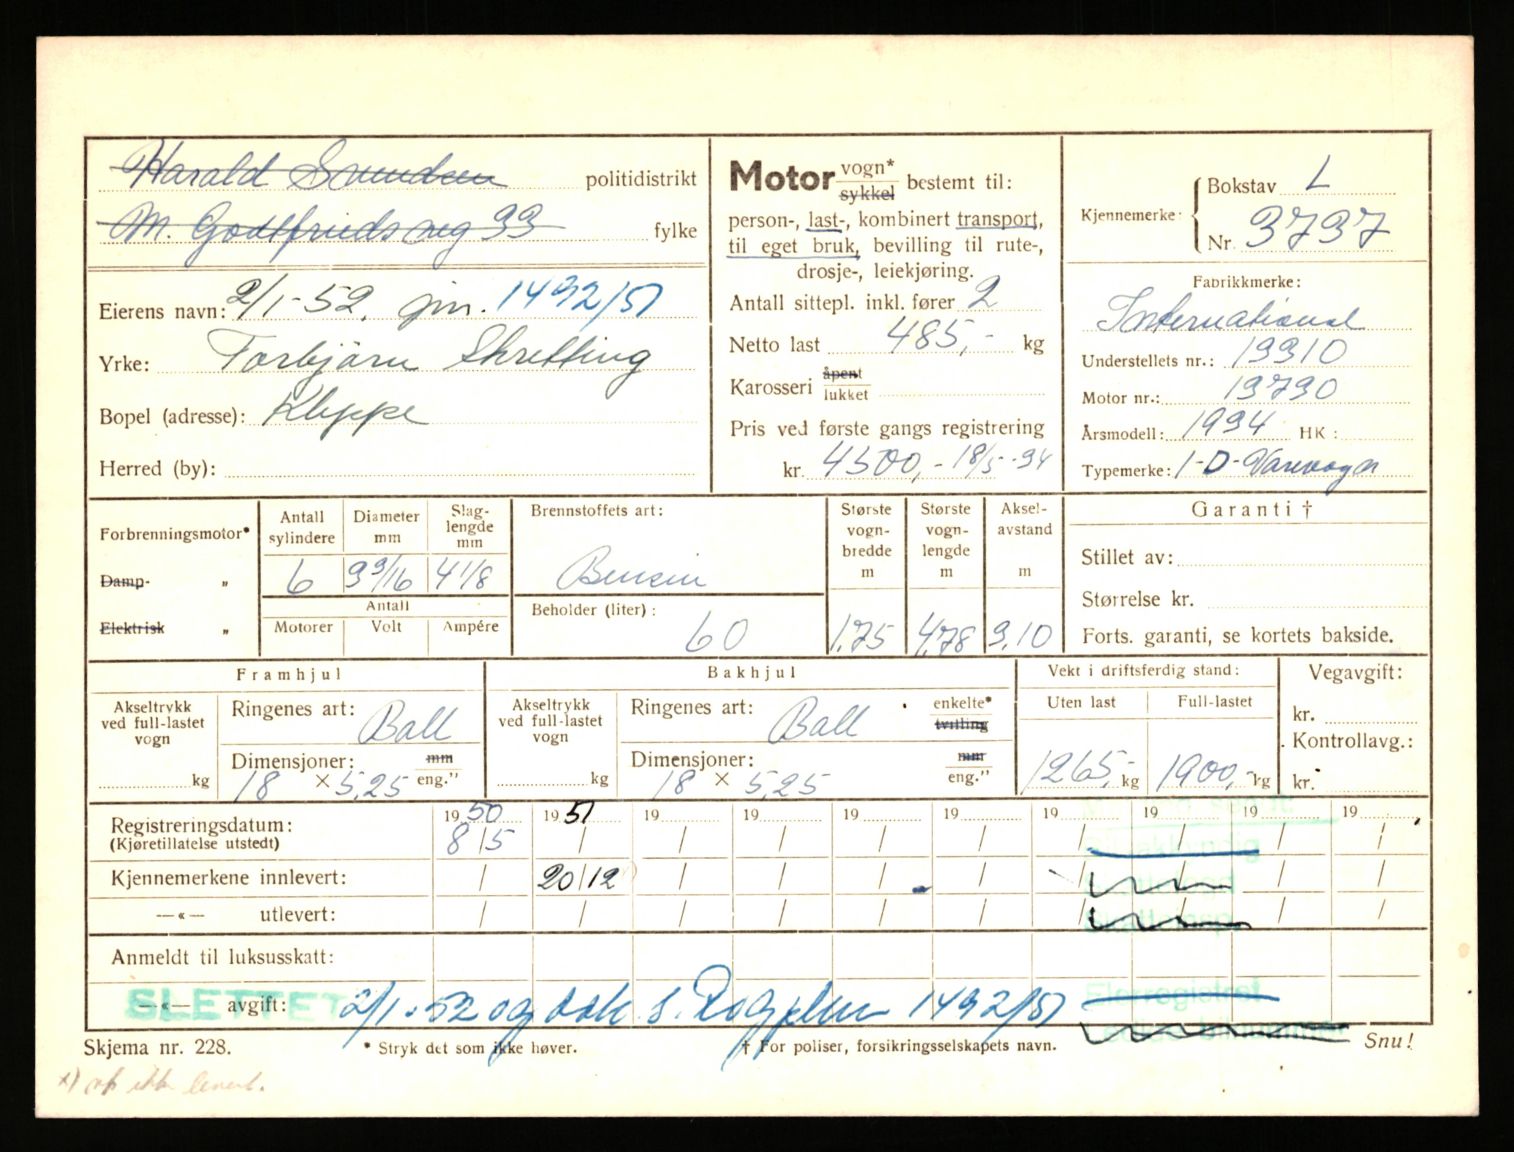 Harald politidistrikt
M. 33 fylke
Eierens navn: 2/1-52. jnr. 1492/51
Yrke: Torbjørn Skretting
Bopel (adresse): Kleppe
Herred (by):
Motor vogn* sykkel bestemt til:
person-, last-, kombinert transport,
til eget bruk, bevilling til rute-,
drosje-, leiekjøring.
Antall sittepl. inkl. fører 2
Netto last 485,- kg
Karosseri åpent lukket
Pris ved første gangs registrering
kr. 4500,- 18/5-34
Kjennemerke: Bokstav L
Nr. 3737
Fabrikkmerke:
International
Understellets nr.: 19910
Motor nr.: 19790
Årsmodell: 1934 HK:
Typemerke: 1-D-Varevogn
Forbrenningsmotor*
Damp- „
Elektrisk „
Antall sylindere 6
Diameter mm 3 9/16
Slaglengde mm 4 1/8
Antall
Motorer Volt Ampére
Brennstoffets art:
Bensin
Beholder (liter):
60
Største vognbredde m 1,75
Største vognlengde m 4,78
Akselavstand m 3,10
Garanti †
Stillet av:
Størrelse kr.
Forts. garanti, se kortets bakside.
Framhjul
Akseltrykk ved full-lastet vogn kg
Ringenes art: Ball
Dimensjoner: mm
18 × 5,25 eng.”
Bakhjul
Akseltrykk ved full-lastet vogn kg
Ringenes art: Ball enkelte* tvilling
Dimensjoner: mm
18 × 5,25 eng.”
Vekt i driftsferdig stand:
Uten last Full-lastet
1265,- kg 1900,- kg
Vegavgift:
kr.
Kontrollavg.:
kr.
19 50 19 51 19 19 19 19 19 19 19 19
Registreringsdatum: 8/5
(Kjøretillatelse utstedt)
Kjennemerkene innlevert: 20/12
—«— utlevert:
Anmeldt til luksusskatt:
—«— avgift: SLETTET 2/1-52 og 1492/51
Skjema nr. 228.
* Stryk det som ikke høver.
† For poliser, forsikringsselskapets navn.
Snu!